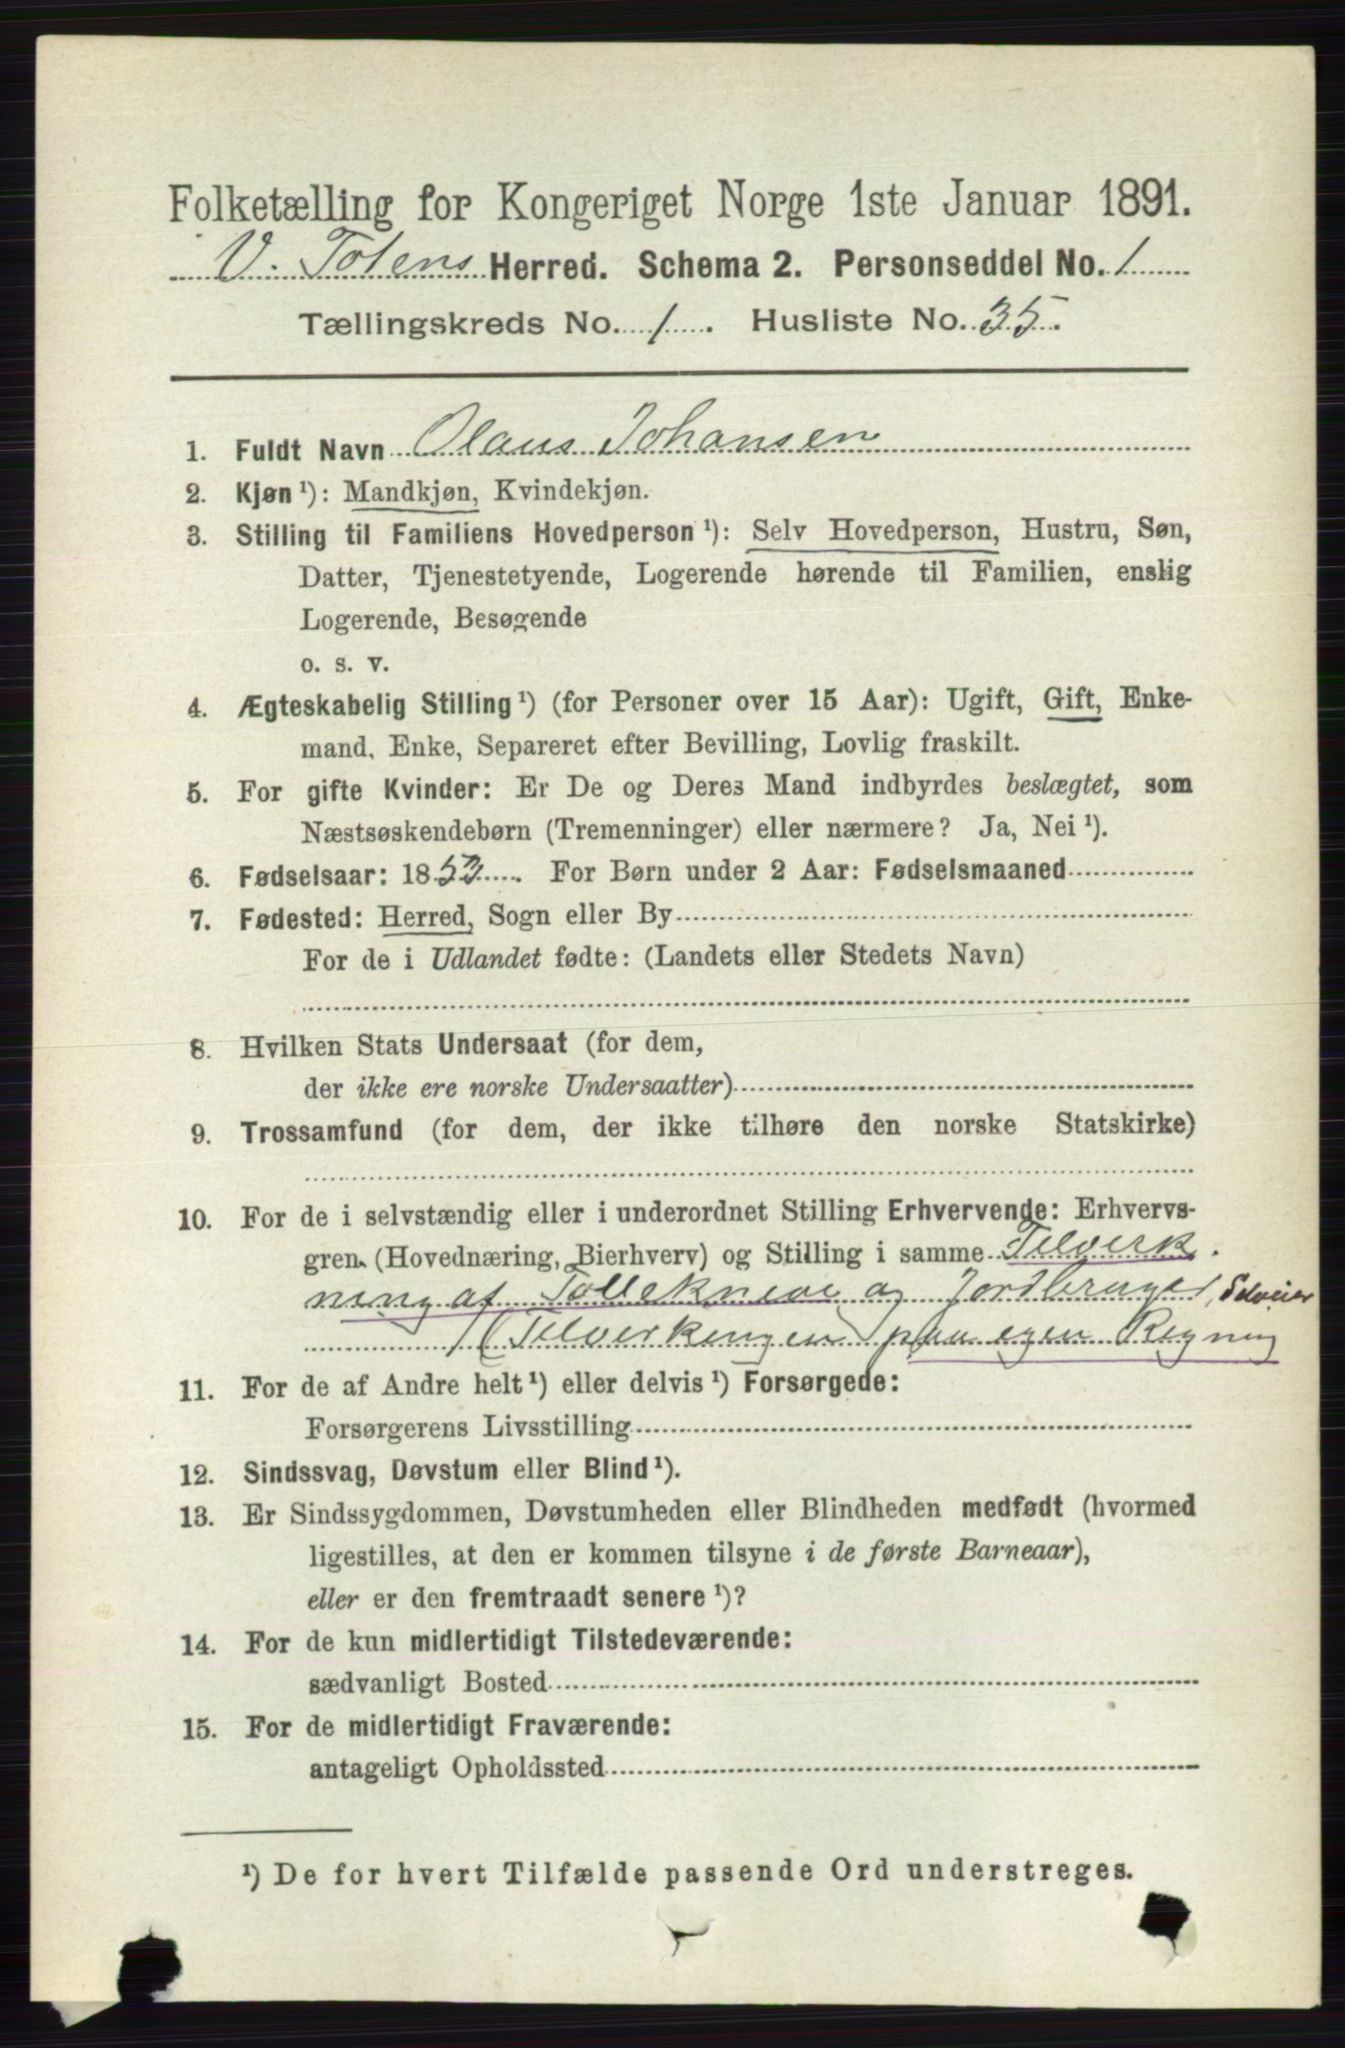 Folketælling for Kongeriget Norge 1ste Januar 1891.
V. Totens Herred. Schema 2. Personseddel No. 1
Tællingskreds No. 1. Husliste No. 35.
1. Fuldt Navn Olaus Johansen
2. Kjøn ¹): Mandkjøn, Kvindekjøn.
3. Stilling til Familiens Hovedperson ¹): Selv Hovedperson, Hustru, Søn,
Datter, Tjenestetyende, Logerende hørende til Familien, enslig
Logerende, Besøgende
o. s. v.
4. Ægteskabelig Stilling ¹) (for Personer over 15 Aar): Ugift, Gift, Enke-
mand, Enke, Separeret efter Bevilling, Lovlig fraskilt.
5. For gifte Kvinder: Er De og Deres Mand indbyrdes beslægtet, som
Næstsøskendebørn (Tremenninger) eller nærmere? Ja, Nei ¹).
6. Fødselsaar: 1853. For Børn under 2 Aar: Fødselsmaaned
7. Fødested: Herred, Sogn eller By
For de i Udlandet fødte: (Landets eller Stedets Navn)
8. Hvilken Stats Undersaat (for dem,
der ikke ere norske Undersaatter)
9. Trossamfund (for dem, der ikke tilhøre den norske Statskirke)
10. For de i selvstændig eller i underordnet Stilling Erhvervende: Erhvervs-
gren (Hovednæring, Bierhverv) og Stilling i samme Tilverk
ning af Tolleknive og Jordbruger, Selveier
(Tilverkingen paa egen Regning
11. For de af Andre helt ¹) eller delvis ¹) Forsørgede:
Forsørgerens Livsstilling
12. Sindssvag, Døvstum eller Blind ¹).
13. Er Sindssygdommen, Døvstumheden eller Blindheden medfødt (hvormed
ligestilles, at den er kommen tilsyne i de første Barneaar),
eller er den fremtraadt senere ¹)?
14. For de kun midlertidigt Tilstedeværende:
sædvanligt Bosted
15. For de midlertidigt Fraværende:
antageligt Opholdssted
¹) De for hvert Tilfælde passende Ord understreges.